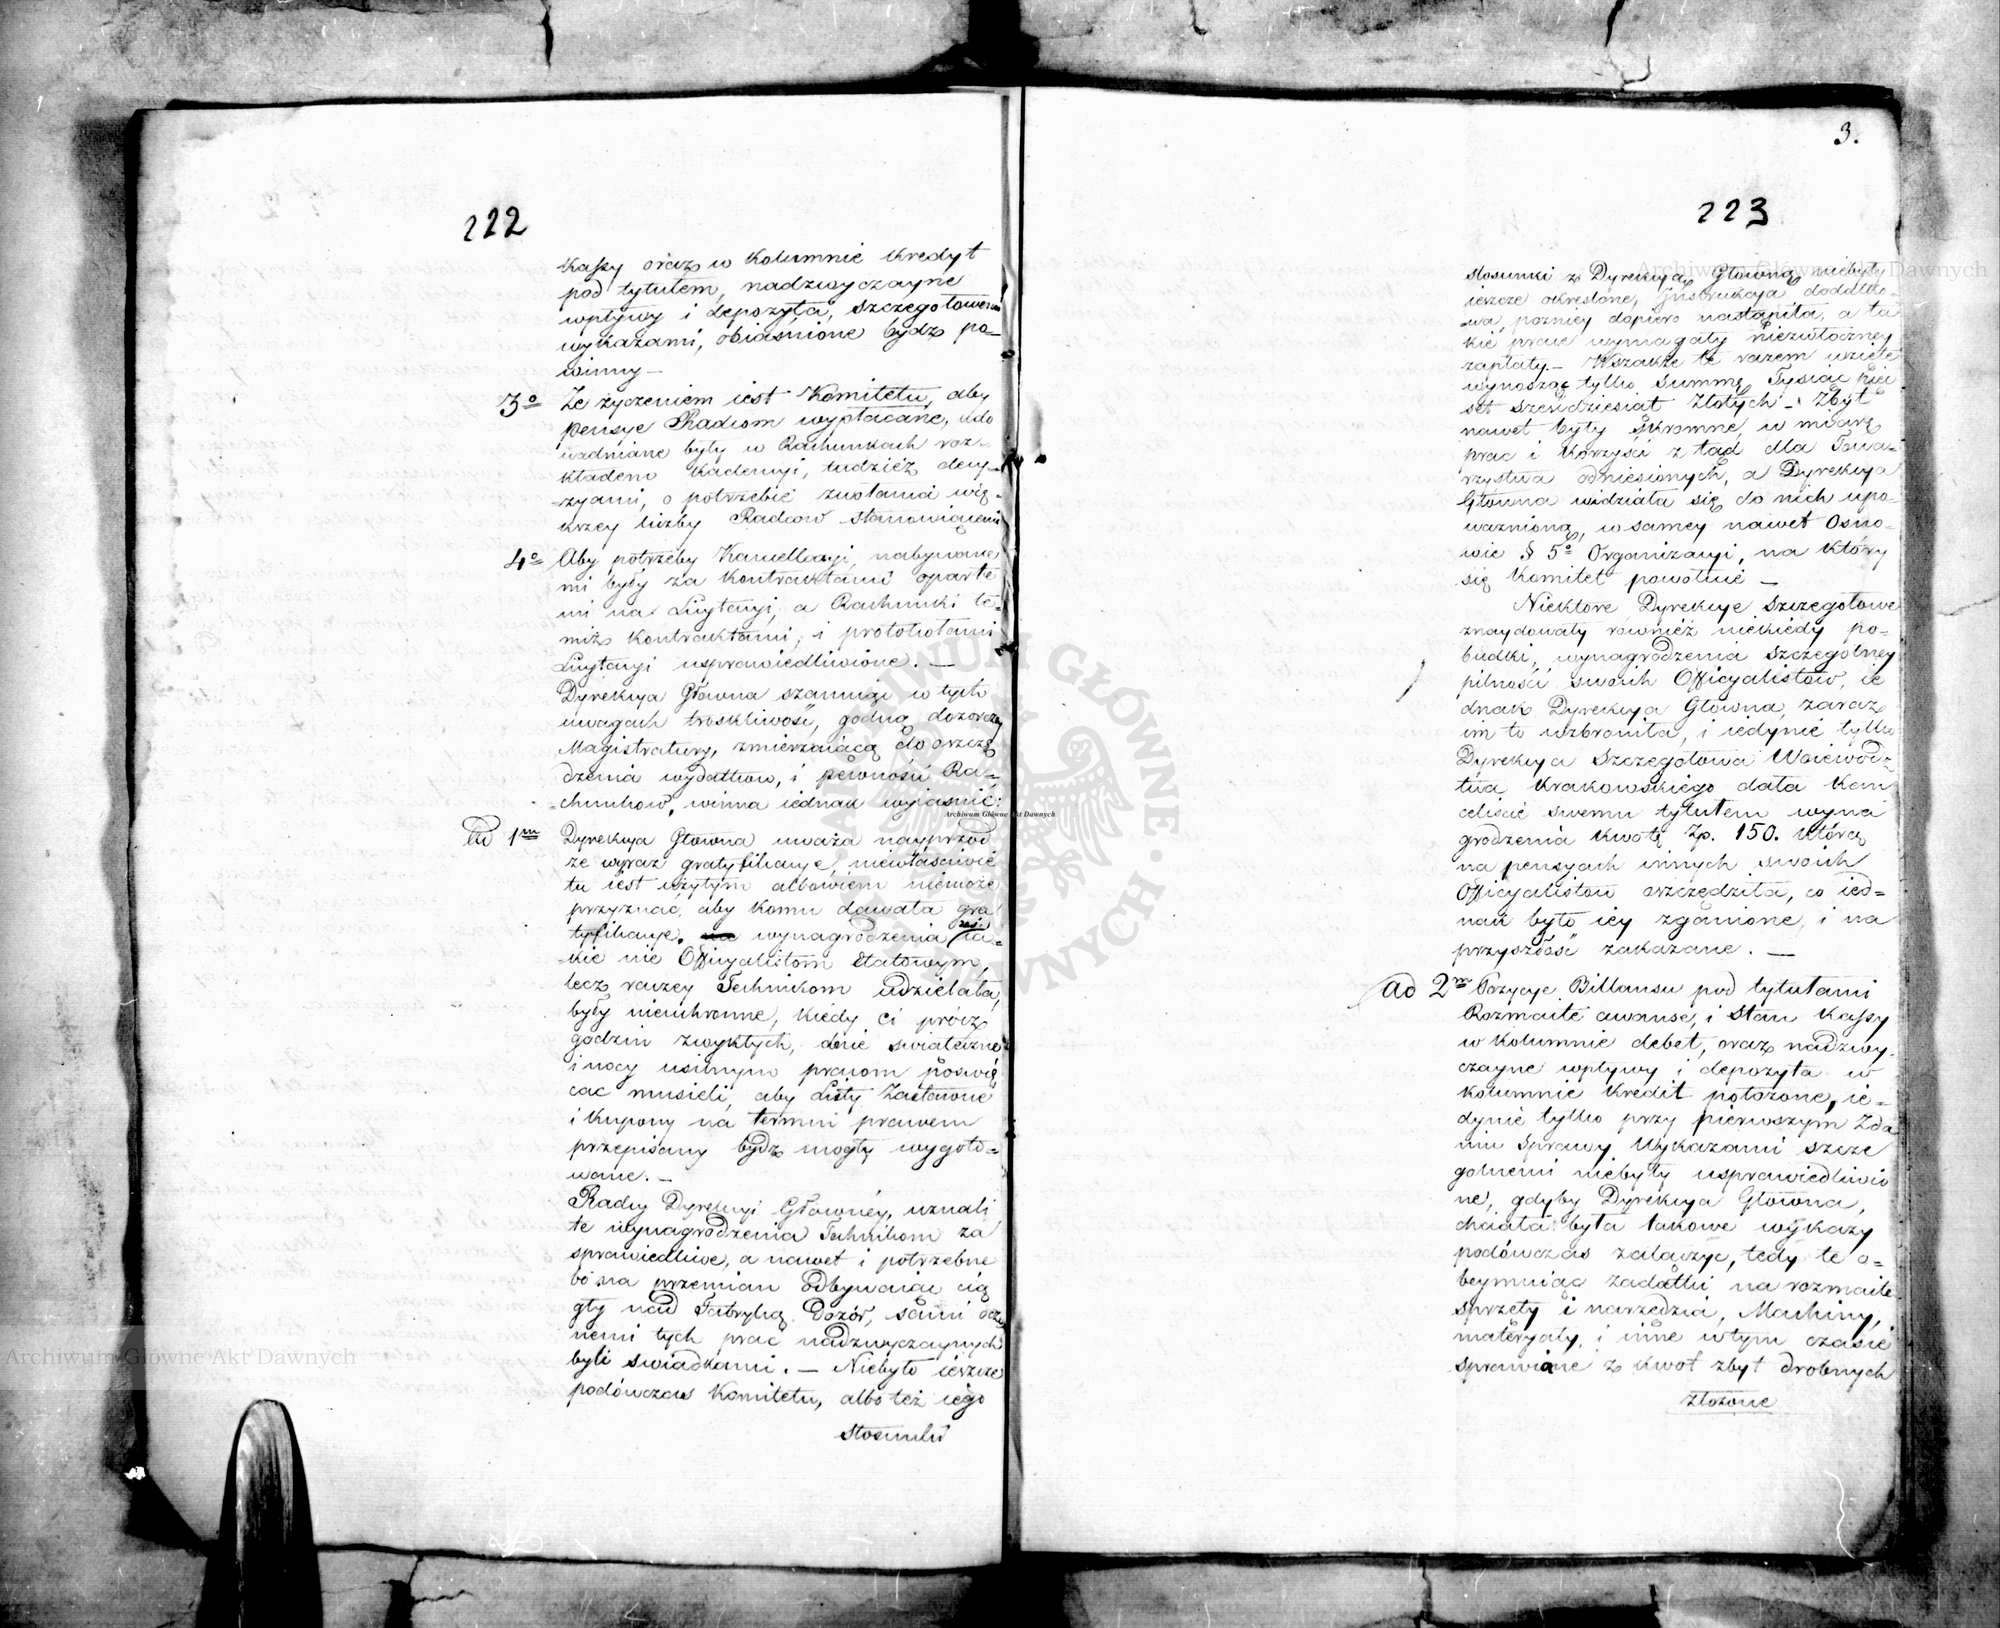 222
Kassy oraz w kolumnie kredyt
pod tytułem, nadzwyczayne
wpływy i depozyta, szczegołowemi
wykazami, obiaśnione bydz po-
winny —
3o Że życzeniem iest Komitetu, aby
pensye Radcom wypłacane, udo
wadniane były w Rachunkach roz-
kładem kadencyi, tudzież decy-
zyami, o potrzebie zwołania wię-
kszey liczby Radców stanowiącemi
4o Aby potrzeby Kancellaryi, nabywane
mi były za kontraktami oparte
mi na Licytacyi, a Rachunki te-
miż kontraktami, i protokołami
Licytacyi usprawiedliwione. —
Dyrekcya Główna szanując w tych
uwagach troskliwość, godną dozorczey
Magistratury, zmierzaiącą do oszczę
dzenia wydatków, i pewności Ra-
chunków, winna iednak wyjaśnić:
Ad 1m Dyrekcya Główna uważa nayprzód
że wyraz gratyfikacye, niewłaściwie
tu iest użytym albowiem niemoże
przyznać, aby komu dawała gra
tyfikacye. wynagrodzenia zaś ia-
kie nie Officyalistom Etatowym,
lecz raczey Technikom udzielała,
były nieuchronne, kiedy ci prócz
godzin zwykłych, dnie swiąteczne
i nocy usilnym pracom poswię
cać musieli, aby Listy Zastawne
i Kupony na termin prawem
przepisany bydz mogły wygoto-
wane. —
Radcy Dyrekcyi Głównéy, uznali
te wynagrodzenia Technikom za
sprawiedliwe, a nawet i potrzebne
bo na przemian odbywaiąc cią
gły nad Fabryką Dozór, sami ocz
nemi tych prac nadzwyczaynych
byli swiadkami. — Niebyło ieszcze
podówczas Komitetu, albo też iego
stosunki
3.
223
stosunki z Dyrekcyą Główną niebyły
ieszcze określone, Instrukcya dodatko-
wa, pozniey dopiero nastąpiła, a ta
kie prace wymagały niezwłoczney
zapłaty. — Wszakże te razem wzięte
wynosząc tylko summę Tysiąc pięć
set sześdziesiąt Złotych — Zbyt
nawet były skromne, w miarę
prac i korzyści z tąd dla Towa-
rzystwa odniesionych, a Dyrekcya
Główna widziała się do nich upo-
ważnioną, w samey nawet Osno-
wie § 5o Organizacyi, na który
się Komitet powołuie —
Niektóre Dyrekcye Szczegołowe
znaydowały również niekiedy po-
budki, wynagrodzenia szczegolney
pilności swoich Officyalistów, ie
dnak Dyrekcya Główna, zaraz
im to wzbroniła, i iedynie tylko
Dyrekcya Szczegołowa Woiewodz-
twa Krakowskiego dała Kan
celiście swemu tytułem wyna
grodzenia kwotę Zp. 150. którą
na pensyach innych swoich
Officyalistow oszczędziła, co ied-
nak było iey zganione, i na
przyszłość zakazane. —
Ad 2m Pozycye Billansu pod tytułami
Rozmaite awanse, i Stan Kassy
w kolumnie debet, oraz nadzwy-
czayne wpływy i depozyta w
kolumnie kredit położone, ie-
dynie tylko przy pierwszym Zda
niu Sprawy Wykazami szcze
golnemi niebyły usprawiedliwio
ne, gdyby Dyrekcya Główna,
chciała była takowe wykazy
podówczas załączyć, tedy te o-
beymuiąc zadatki na rozmaite
sprzęty i narzędzia, Machiny,
materyały, i inne w tym czasie
sprawiane z kwot zbyt drobnych
złożone
Archiwum Główne Akt Dawnych
Archiwum Główne Akt Dawnych
Archiwum Główne Akt Dawnych
ARCHIWUM GŁÓWNE AKT DAWNYCH